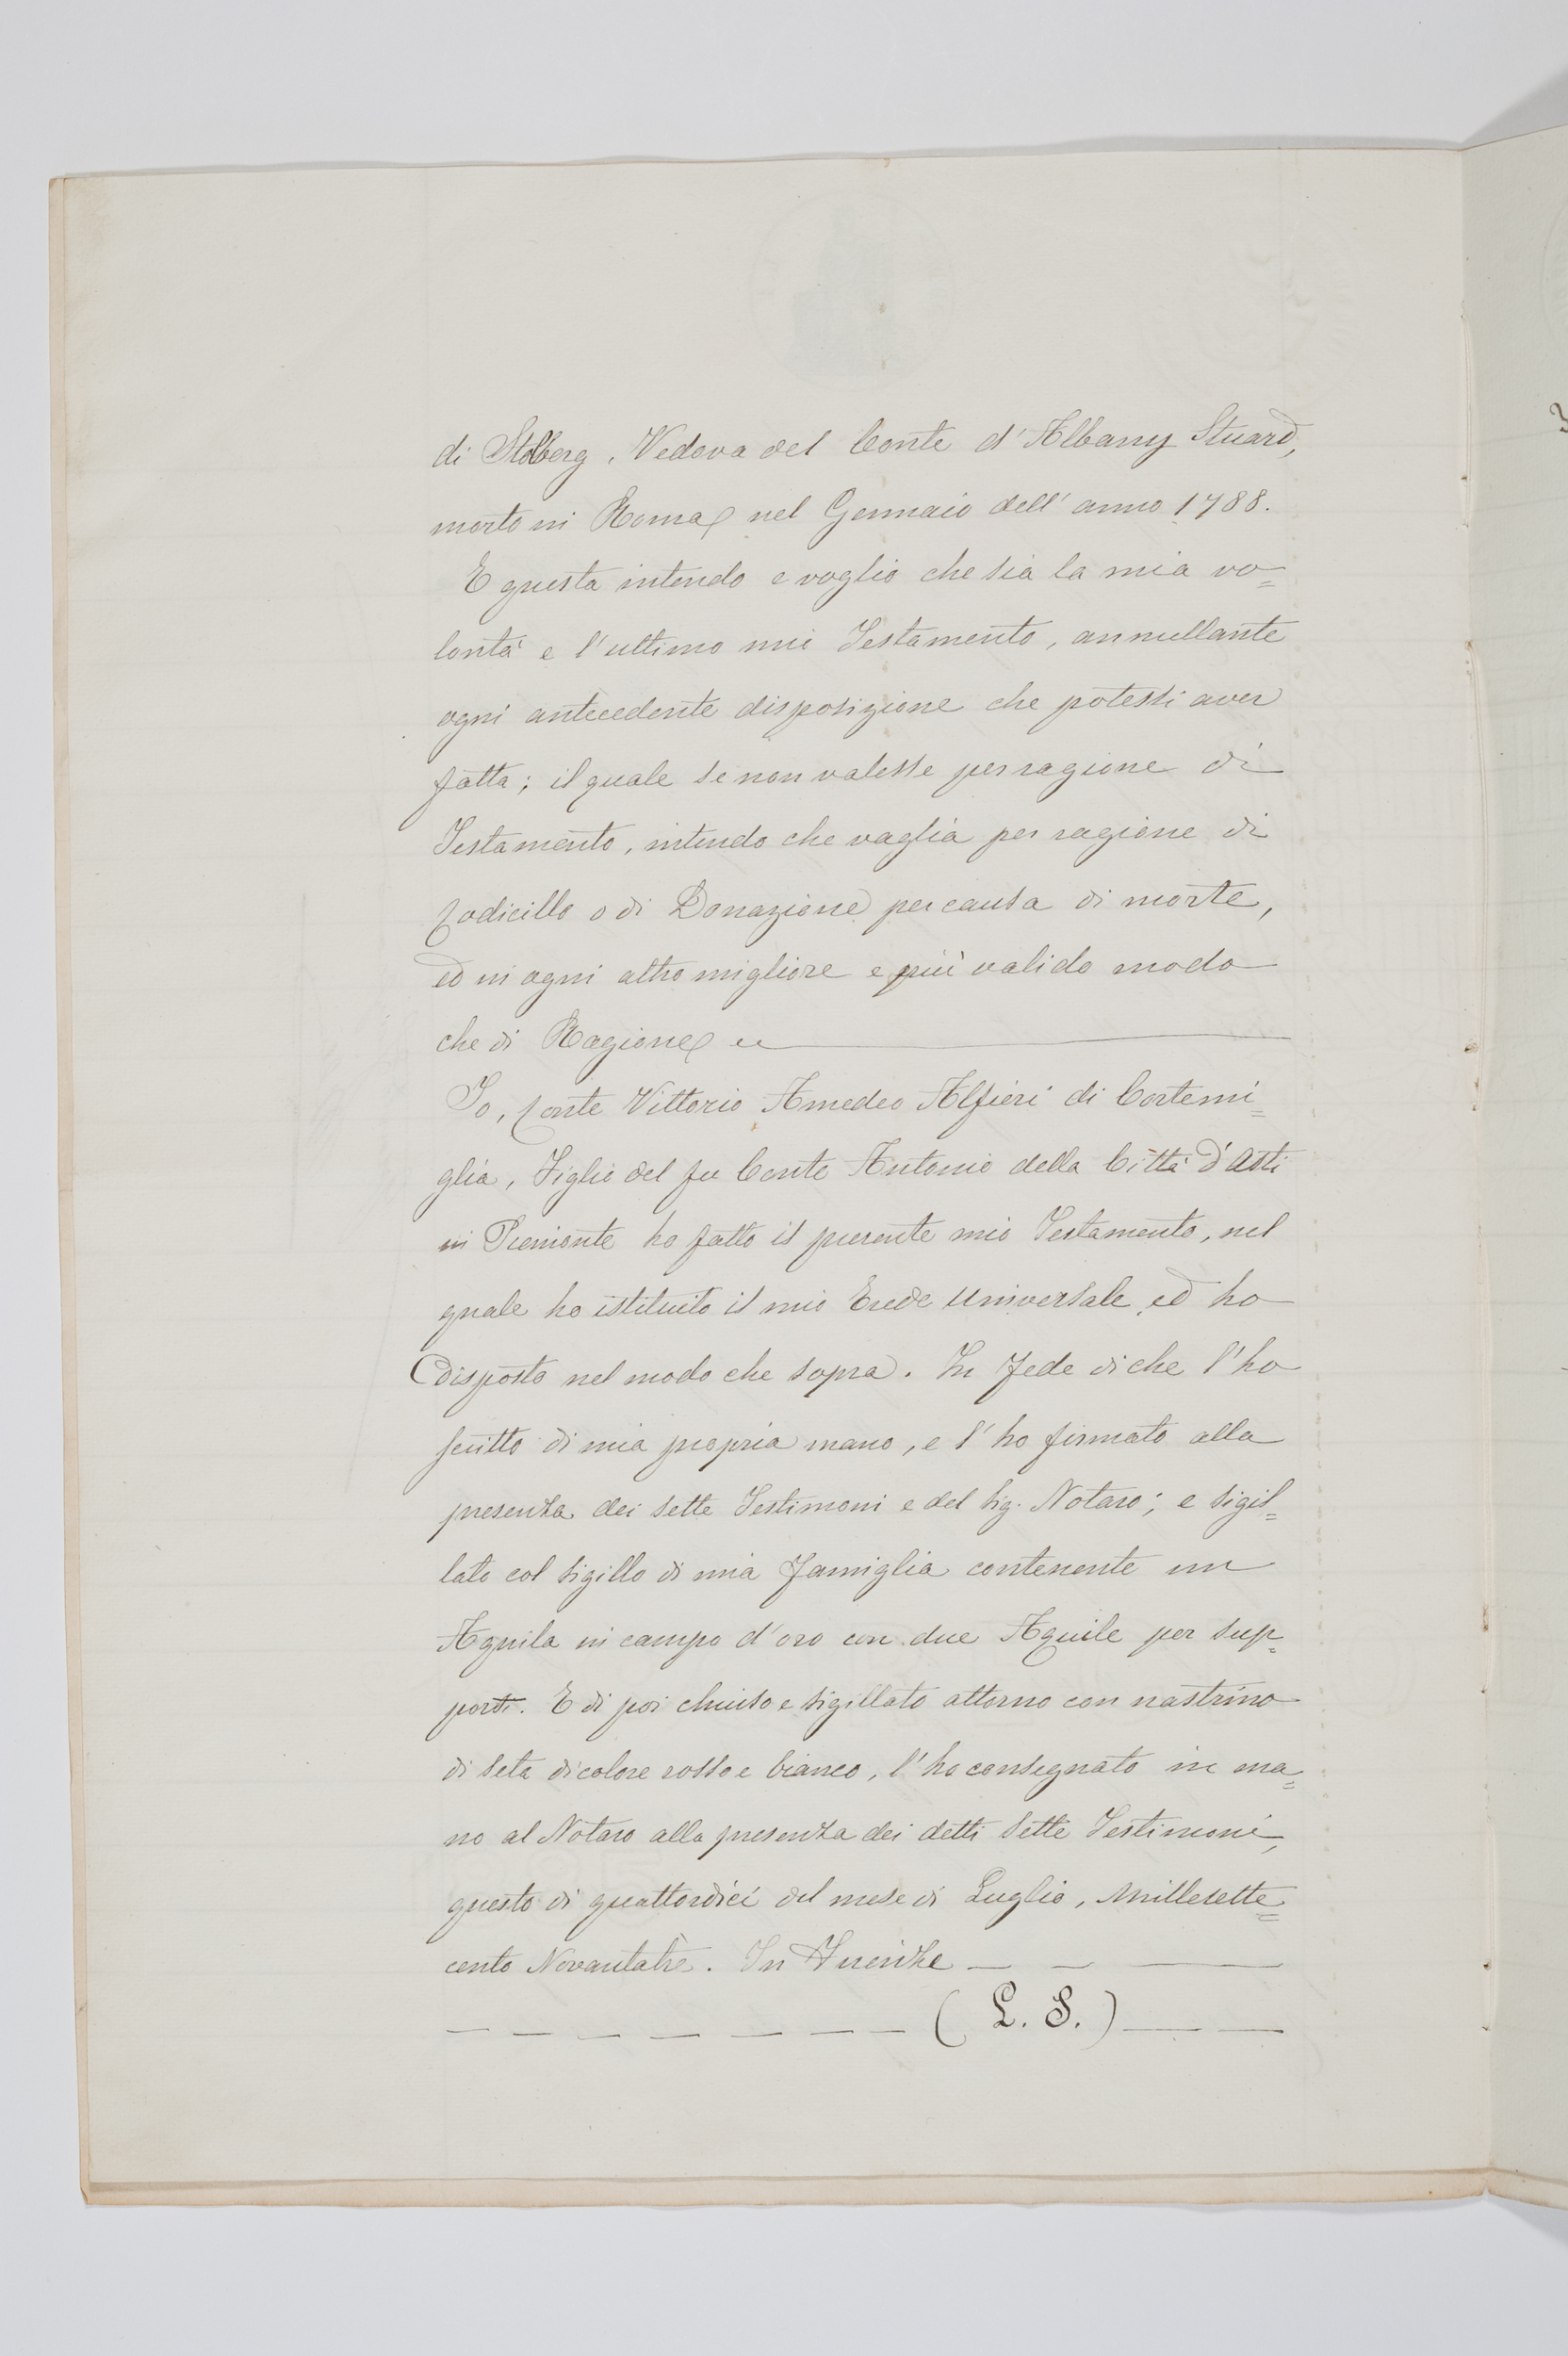 di Stolberg, Vedova del Conte d'Albany Stuard,
morto in Roma nel Gennaio dell'anno 1788.
E questa intendo e voglio che sia la mia vo=
lontà e l'ultimo mio Testamento, annullante
ogni antecedente disposizione che potessi aver
fatta; il quale se non valesse per ragione di
Testamento, intendo che vaglia per ragione di
Codicillo o di Donazione per causa di morte,
ed in ogni altro migliore e più valido modo
che di Ragione
Io, Conte Vittorio Amedeo Alfieri di Cortemi=
glia, Figlio del fu Conte Antonio della Città d'Asti
in Piemonte ho fatto il presente mio Testamento, nel
quale ho istituito il mio Erede universale ed ho
disposto nel modo che sopra. In fede di che l'ho
scritto di mia propria mano, e l'ho firmato alla
presenza dei sette Testimoni e del Sig. Notaro; e sigil=
lato col sigillo di mia famiglia contenente un
Aquila in campo d'oro con due Aquile per sup=
porti. E di poi chiuso e sigillato attorno con nastrino
di seta di colore rosso e bianco, l'ho consegnato in ma=
no al Notaro alla presenza dei detti sette Testimoni,
questo di quattordici del mese di Luglio, Millesette=
cento Novantatrè. In Firenze — — —
— — — — — — — (L. S.) — —